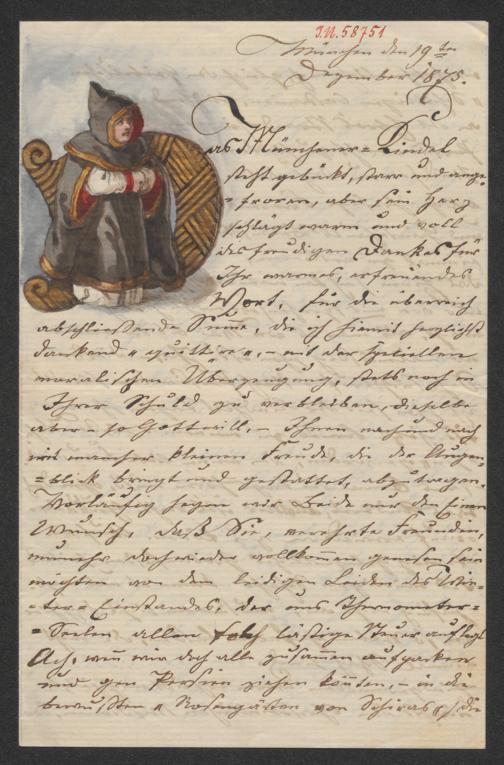 I.N. 58751
München den 19ten
Dezember 1875.
Das Münchener=Kindel
steht gebückt, starr und ange-
=froren, aber sein Herz
schlägt warm und voll
des freudigen Dankes für
Ihr warmes, erfreuendes
Wort, für die überreich
abschließende Summe, die ich hiemit herzlichst
dankend „quittire", – mit der speziellen
moralischen Überzeugung, stets noch in
Ihrer Schuld zu verbleiben, dieselbe
aber – so Gott will, – Ihnen nach und nach
mit mancher kleinen Freude, die der Augen-
=blick bringt und gestattet, abzutragen.
Vorläufig hegen wir Beide nur den Einen
Wunsch, daß Sie, verehrte Freundin,
nunmehr doch wieder vollkommen genesen sein
möchten von dem leidigen Leiden des Win-
=ter=Einstandes, der uns Thermometer=
=Seelen allen lästige Steuer auflegt
Ach, wenn wir doch alle zusammen aufpacken
und gen Persien ziehen könnten, – in die
bewußten „Rosengärten von Schiras" die